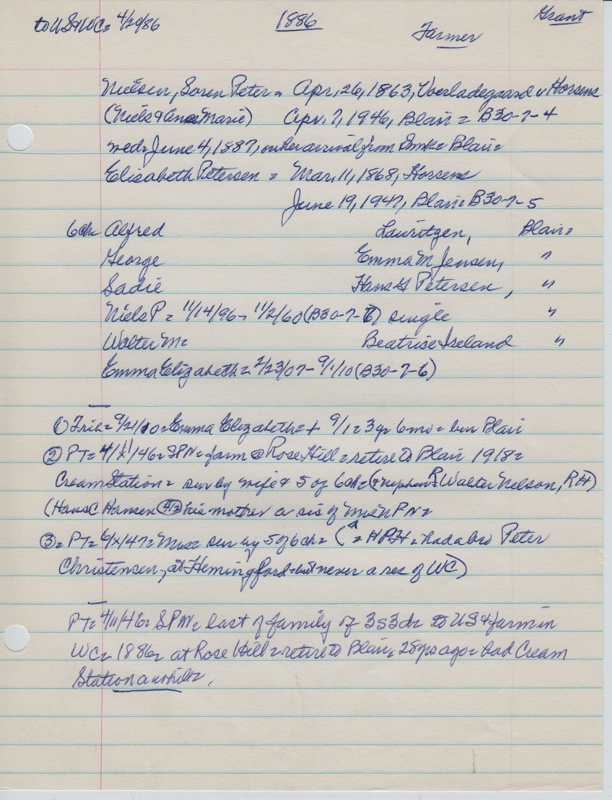 to US & WC = 4/29/86 1886 Farmer Grant
Nielsen, Soren Peter = Apr. 26, 1863, Overladegaard v Horsens
(Niels & Ane Marie) Apr. 7, 1946, Blair = B30-7-4
wed = June 4, 1887, on her arrival from Dmk = Blair =
Elisabeth Petersen = Mar. 11, 1868, Horsens
June 19, 1947, Blair = B30-7-5
6ch = Alfred Lauritzen, Blair =
George Emma M Jensen, "
Sadie Hans G Petersen, "
Niels P = 11/14/96 - 11/2/60 (B30-7-7) single "
Walter M = Beatrice Iseland "
Emma Elizabeth = 2/23/07 - 9/1/10 (B30-7-6)
① Trib = 9/21/10 = Emma Elizabeth = + 9/1 = 3 yr 6 mo = bur Blair
② PT = 4/11/46 = SPN = farm @ Rose Hill = retire to Blair 1918 =
Cream Station = sur by wife & 5 of 6ch = (& nephew R Walter Nelson, RH)
(Hans C Hansen = his mother a sis of Mrs N PN =
③ = PT = 6/ /47 = Mrs = sur by 5 of 6ch = ( = HPH = had a bro Peter
Christensen, at Hemingford = but never a res of WC)
PT = 4/11/46 = SPN = last of family of 3s3d = to US & farm in
WC = 1886 = at Rose Hill = retire to Blair = 28 yrs ago = had Cream
Station awhile =